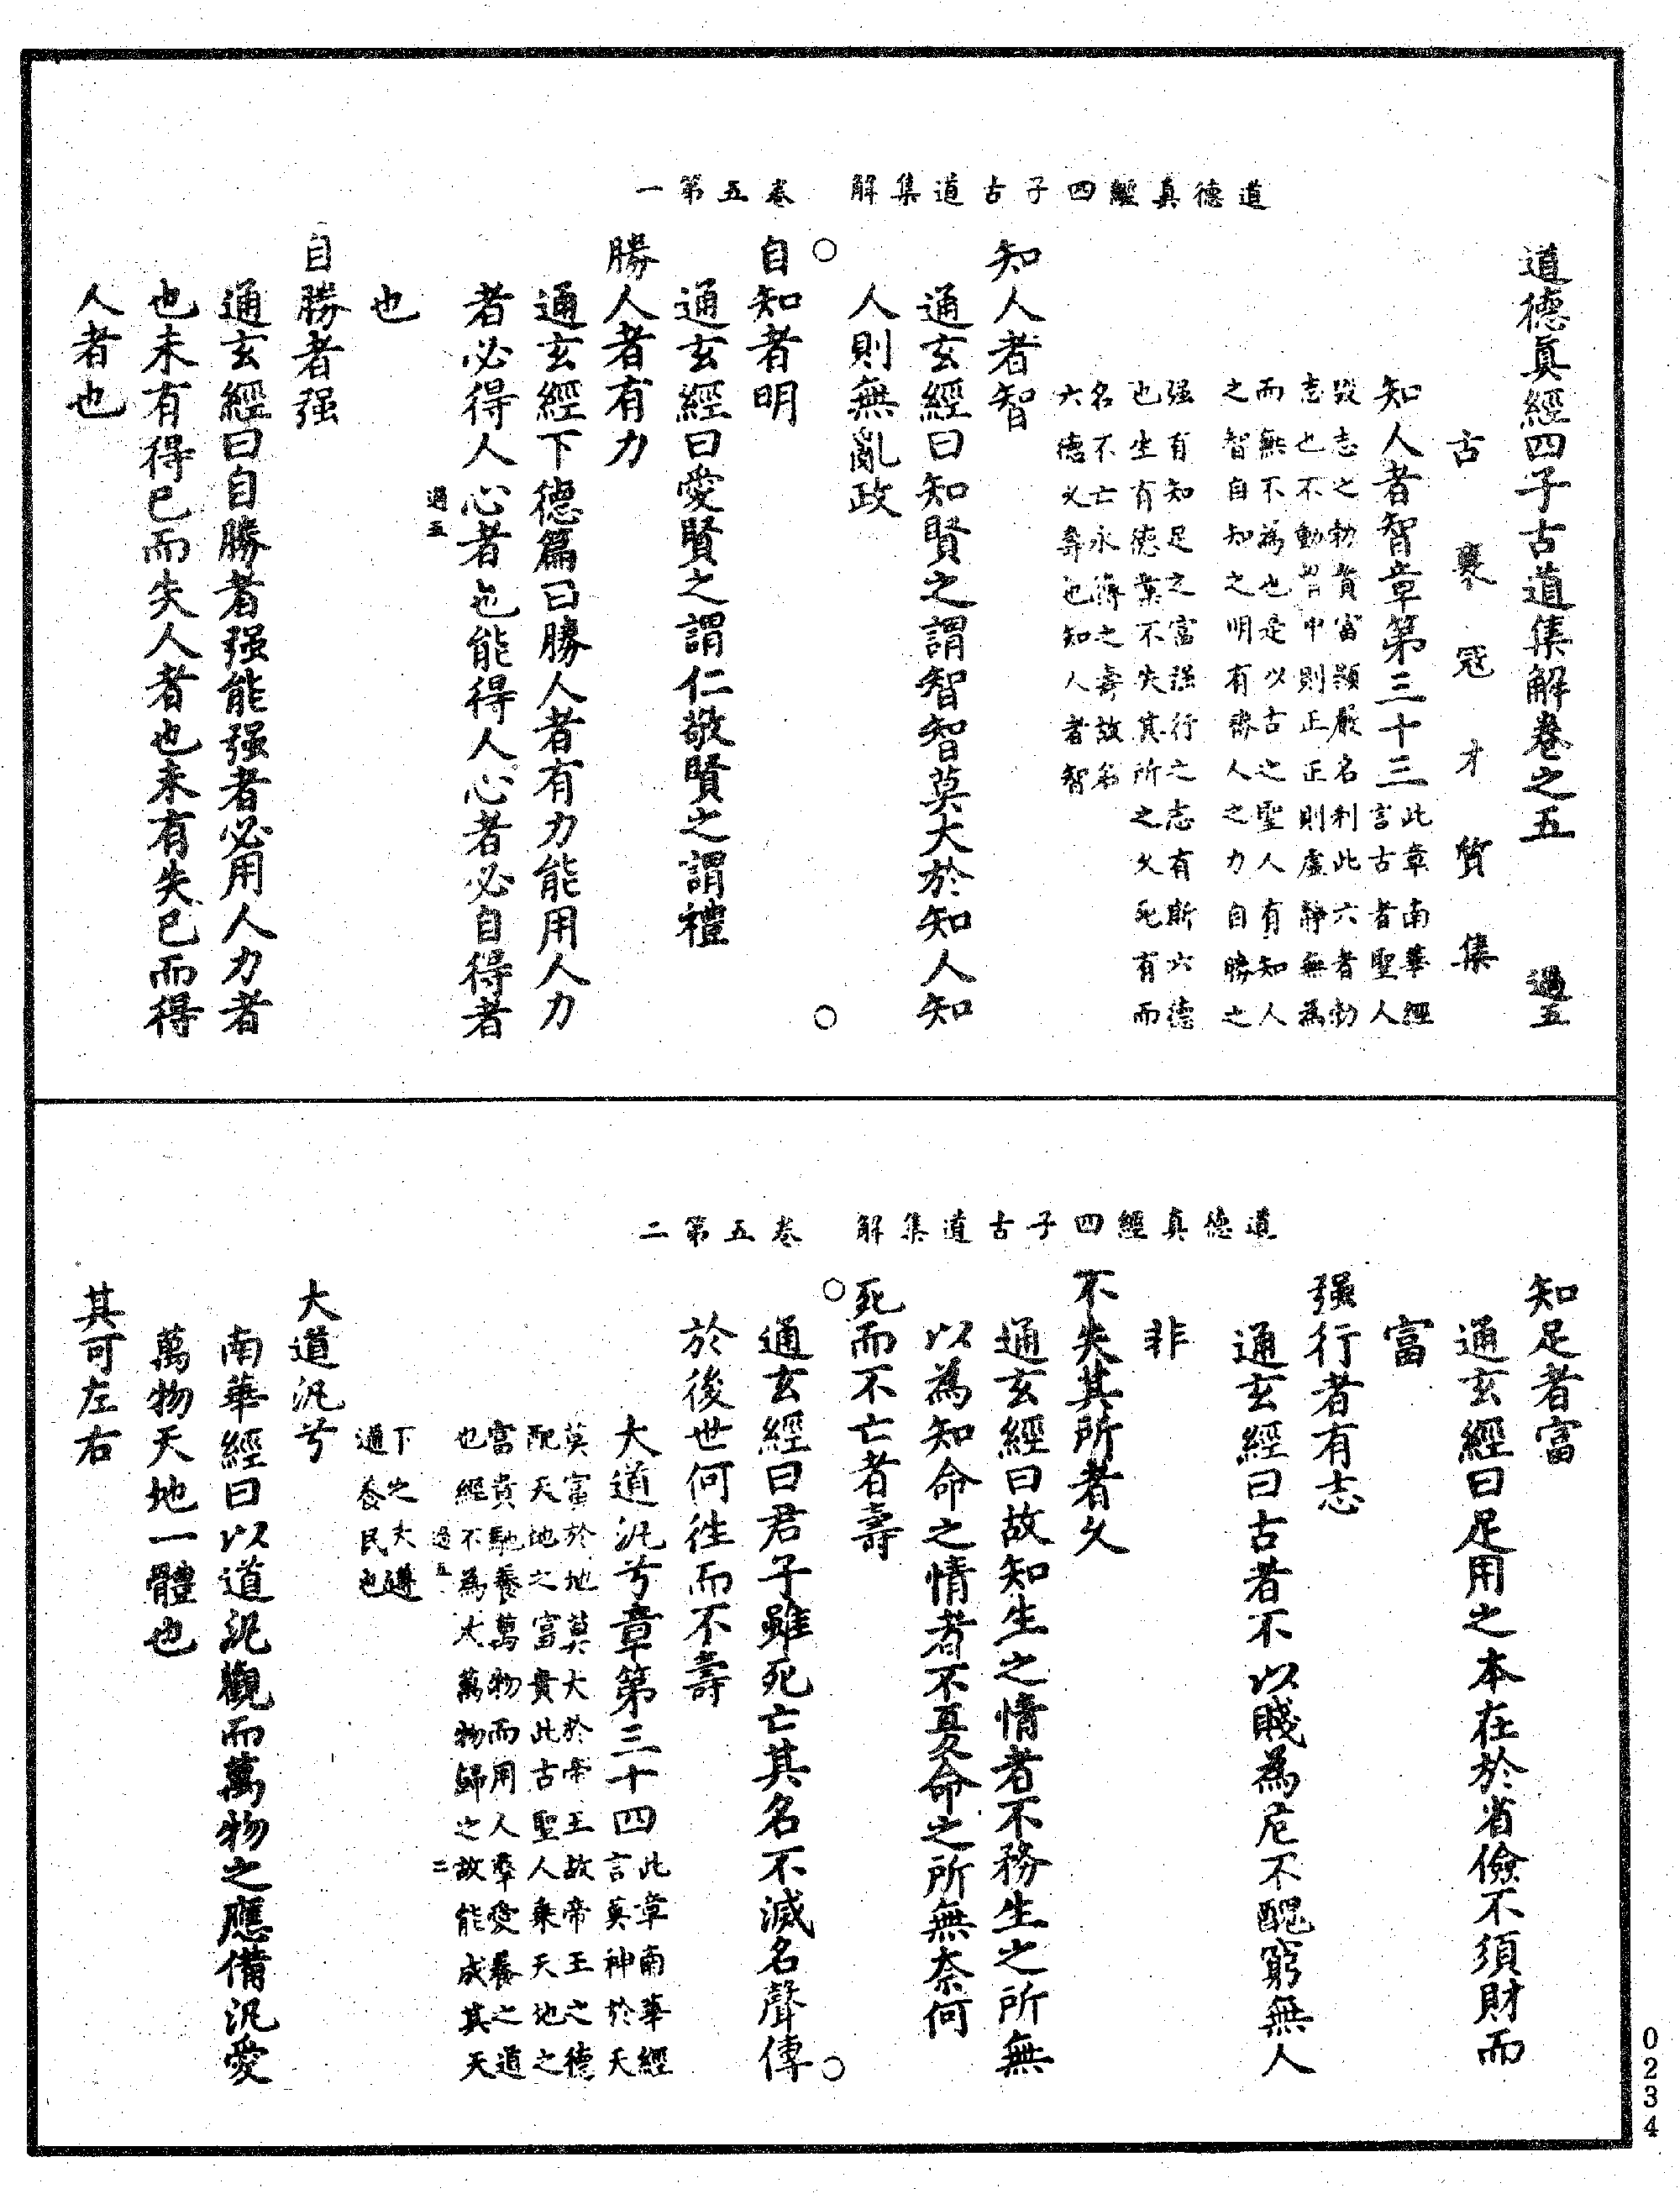 道德真經四子古道集解　卷五第一
道德真經四子古道集解卷之五　過五
古襄寇才質集
知人者智章第三十三
此章南華經
言古者聖人
毀志之勃貴富顯嚴名利此六者勃
志也不動胷中則正正則虛靜無為
而無不為也是以古之聖人有知人
之智自知之明有勝人之力自勝之
强有知足之富强行之志有斯六德
也生有德業不失其所之久死有而
名不亡永傳之壽故第
六德乂壽也知人者智
知人者智
通玄經曰知賢之謂智智莫大於知人知
人則無亂政
自知者明
通玄經曰愛賢之謂仁敬賢之謂禮
勝人者有力
通玄經下德篇曰勝人者有力能用人力
者必得人心者也能得人心者必自得者
過五
也
自勝者强
通玄經曰自勝者强能强者必用人力者
也未有得已而失人者也未有失已而得
人者也
道德真經四子古道集解　卷五第二
知足者富
通玄經曰足用之本在於省儉不須財而
富
强行者有志
通玄經曰古者不以賤為危不醜窮無人
非
不失其所者久
通玄經曰故知生之情者不務生之所無
以為知命之情者不憂命之所無奈何
死而不亡者壽
通玄經曰君子雖死亡其名不滅名聲傳
於後世何往而不壽
大道汎兮章第三十四
此章南華經
言莫神於天
莫富於地莫大於帝王故帝王之德
配天地之富貴此古聖人乗天地之
富貴馳養萬物而用人羣愛養之道
也經不為大萬物歸之故能成其天
過五　二
下之大遵
通養民也
大道汎兮
南華經曰以道汎觀而萬物之應備汎愛
萬物天地一體也
其可左右
0234